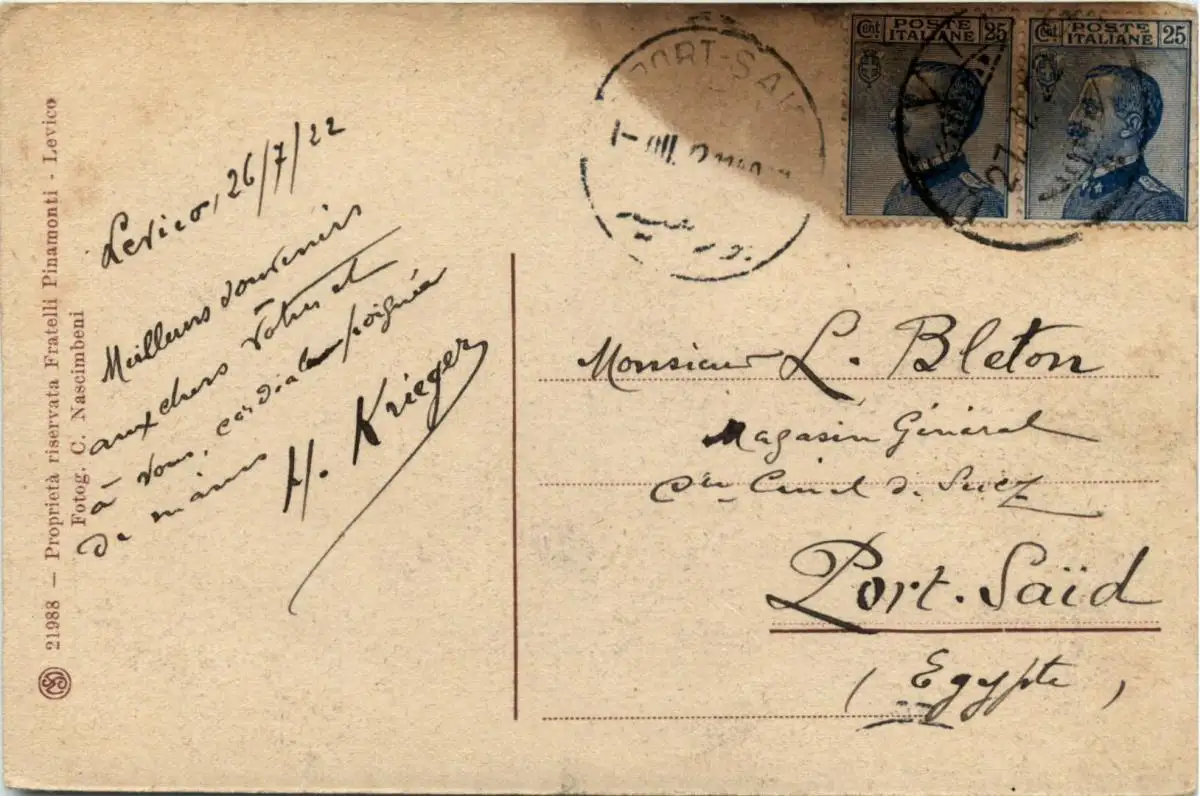 21988 — Proprietà riservata Fratelli Pinamonti - Levico
Fotog. C. Nascimbeni
Levico, 26/7/22
Meilleurs souvenirs
aux chers vôtres et
à vous, cordiales poignées
de mains
H. Krieger
PORT-SAID
Cent. POSTE ITALIANE 25
Cent. POSTE ITALIANE 25
27.7.
Monsieur L. Bleton
Magasin Général
Cie Canal de Suez
Port-Saïd
(Egypte)